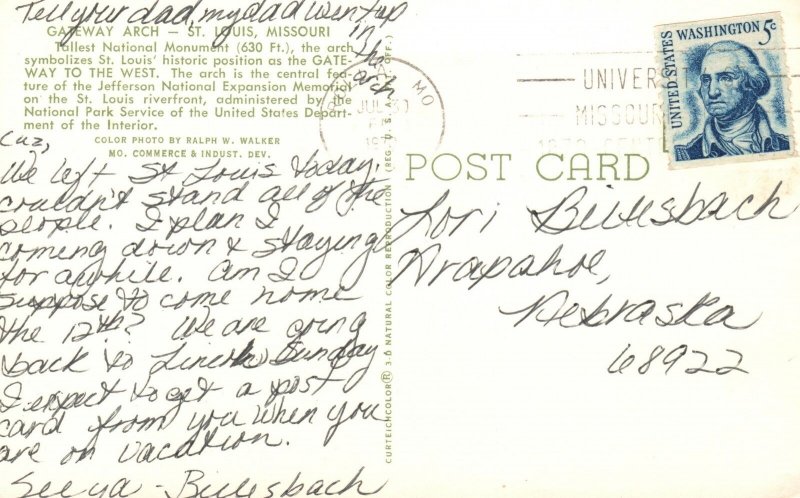 Tell your dad, my dad went up
in
the
arch
GATEWAY ARCH — ST. LOUIS, MISSOURI
Tallest National Monument (630 Ft.), the arch
symbolizes St. Louis' historic position as the GATE-
WAY TO THE WEST. The arch is the central fea-
ture of the Jefferson National Expansion Memorial
on the St. Louis riverfront, administered by the
National Park Service of the United States Depart-
ment of the Interior.
COLOR PHOTO BY RALPH W. WALKER
MO. COMMERCE & INDUST. DEV.
Cuz,
We left St Louis today,
couldn't stand all of the
people. I plan I
coming down & staying
for awhile. Am I
suppose to come home
the 12th? We are going
back to Lincoln Sunday
I expect to get a post
card from you when you
are on vacation.
See ya - Billesbach
CURTEICHCOLOR® 3-D NATURAL COLOR REPRODUCTION (REG. U.S.A. PAT. OFF.)
MO
JUL 30
UNIVERS
MISSOUR
UNITED STATES
WASHINGTON 5c
POST CARD
Lori Billesbach
Arapahoe,
Nebraska
68922